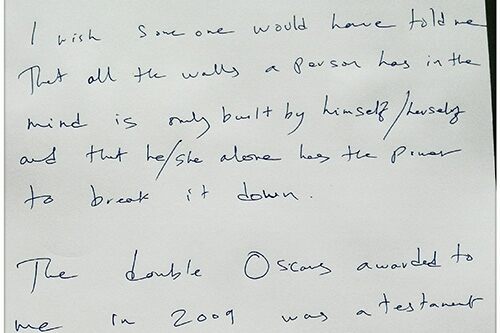 I wish someone would have told me
That all the walls a person has in the
mind is only built by himself/herself
and that he/she alone has the power
to break it down.
The double Oscars awarded to
me in 2009 was a testament